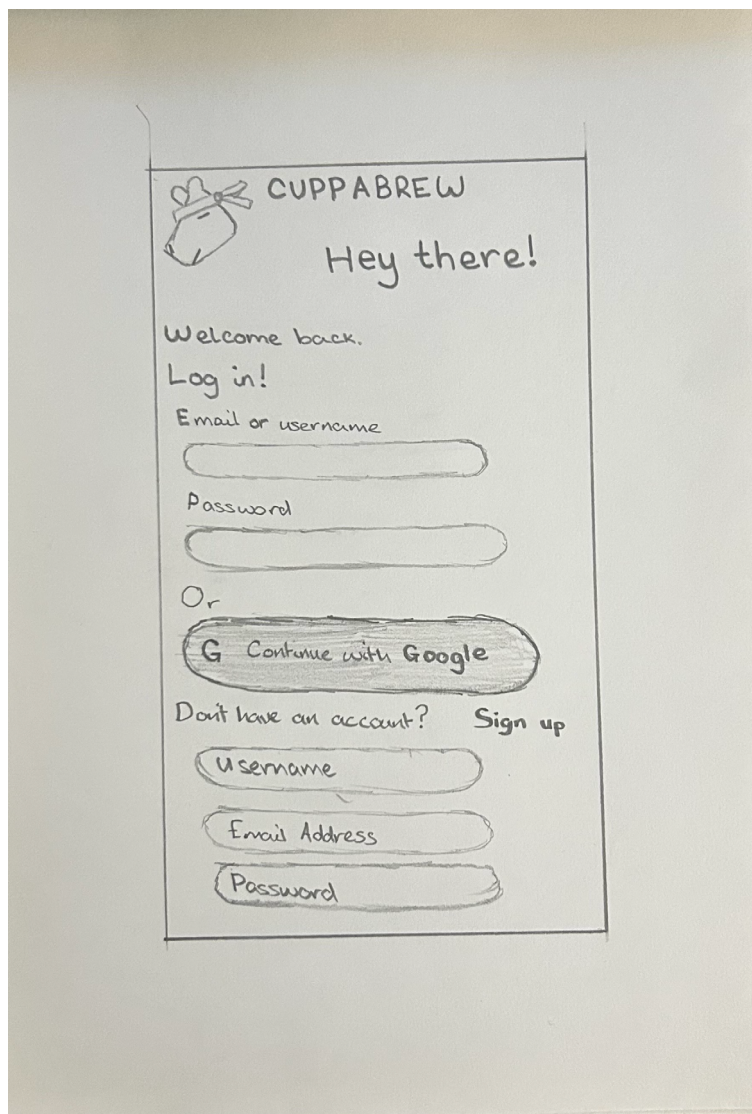 CUPPABREW
Hey there!
Welcome back.
Log in!
Email or username
Password
Or
G Continue with Google
Don't have an account? Sign up
Username
Email Address
Password